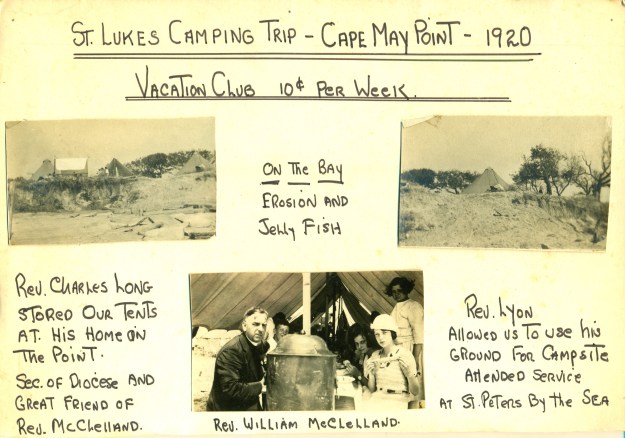 St. Lukes Camping Trip - Cape May Point - 1920
Vacation Club 10¢ Per Week.
On The Bay
Erosion and
Jelly Fish
Rev. Charles Long
Stored Our Tents
At His Home On
The Point.
Sec. of Diocese and
Great Friend of
Rev. McClelland.
Rev. William McClelland.
Rev. Lyon
Allowed us To use his
Ground For Campsite
Attended Service
At St. Peters By the Sea